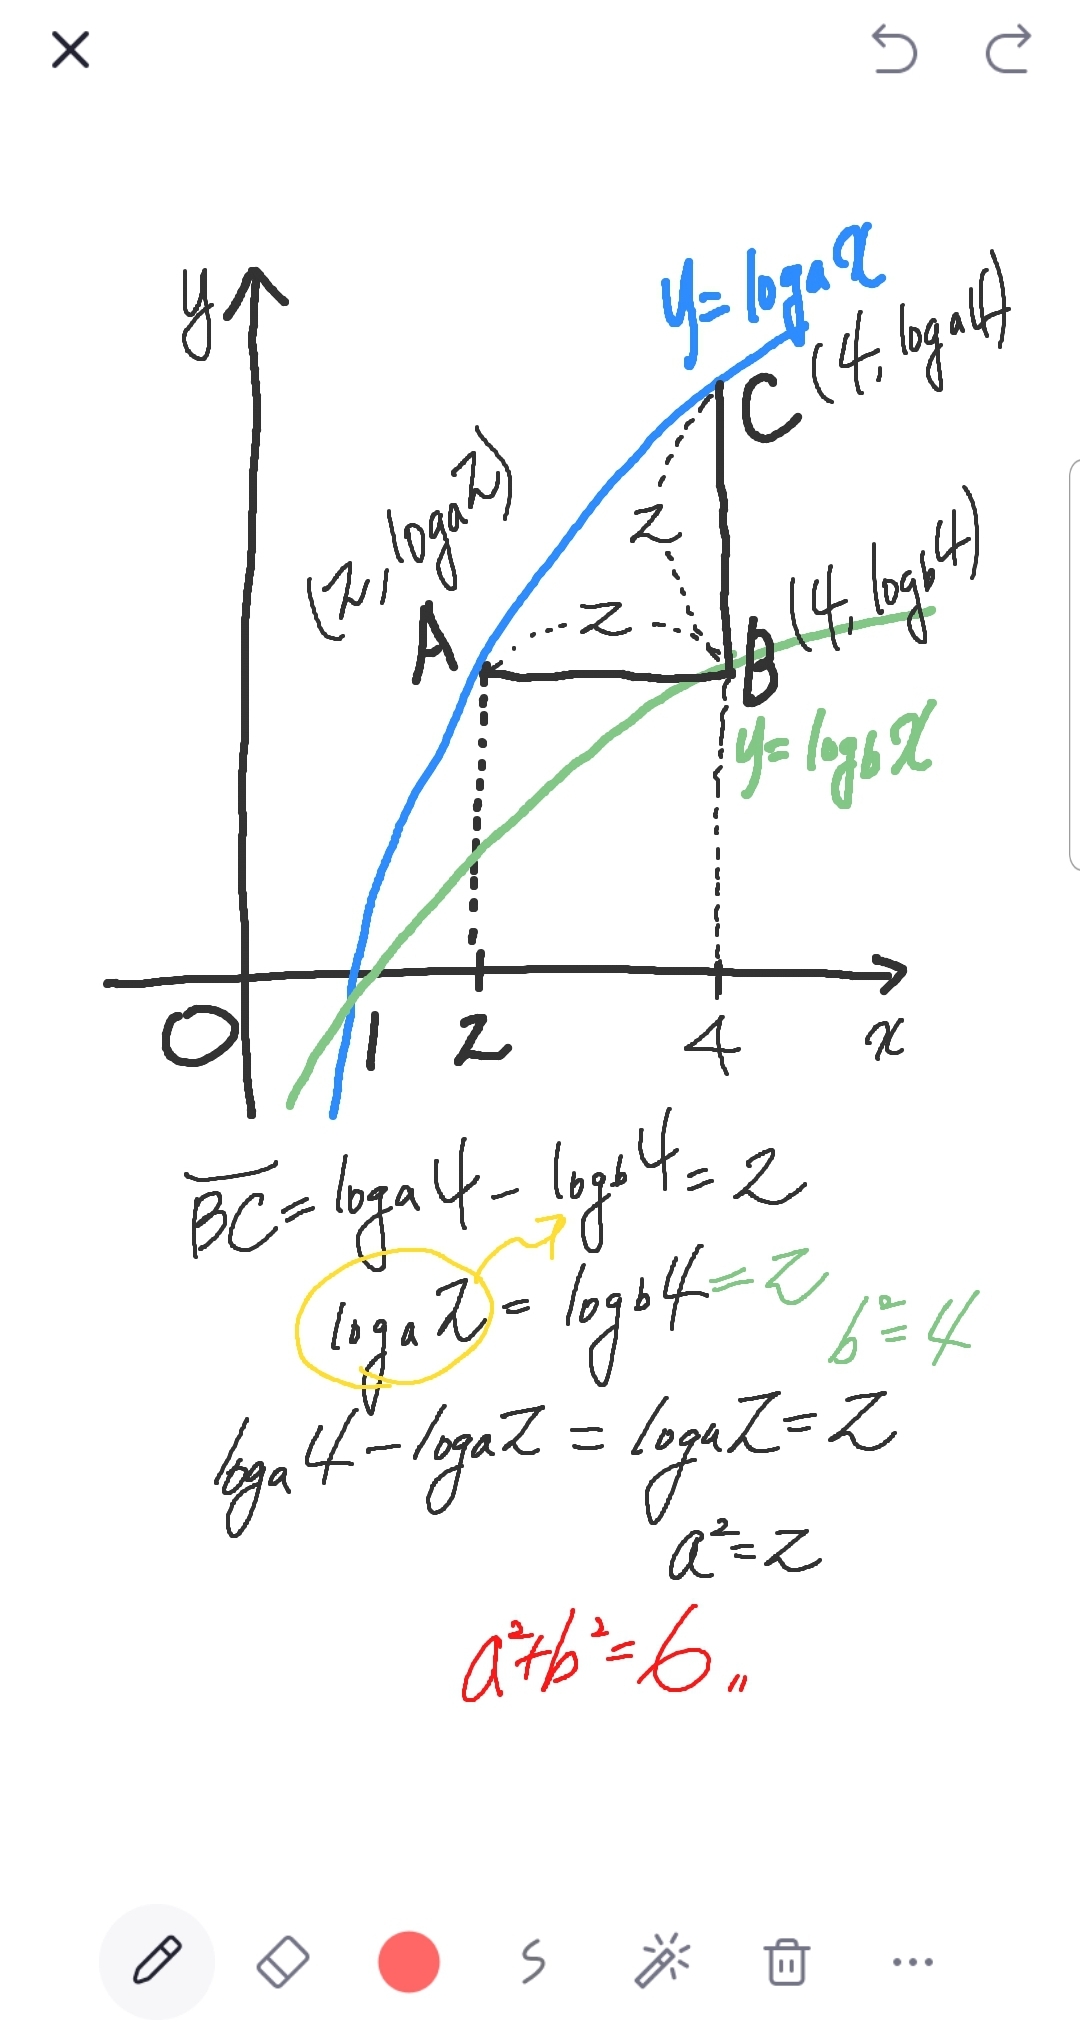 y
y=logₐx
C (4, logₐ4)
(2, logₐ2)
2
A
2
B (4, log_b4)
y=log_bx
O 1 2 4 x
BC = logₐ4 - log_b4 = 2
logₐ2 = log_b4 = 2
b²=4
logₐ4 - logₐ2 = logₐ2 = 2
a²=2
a²+b²=6〃